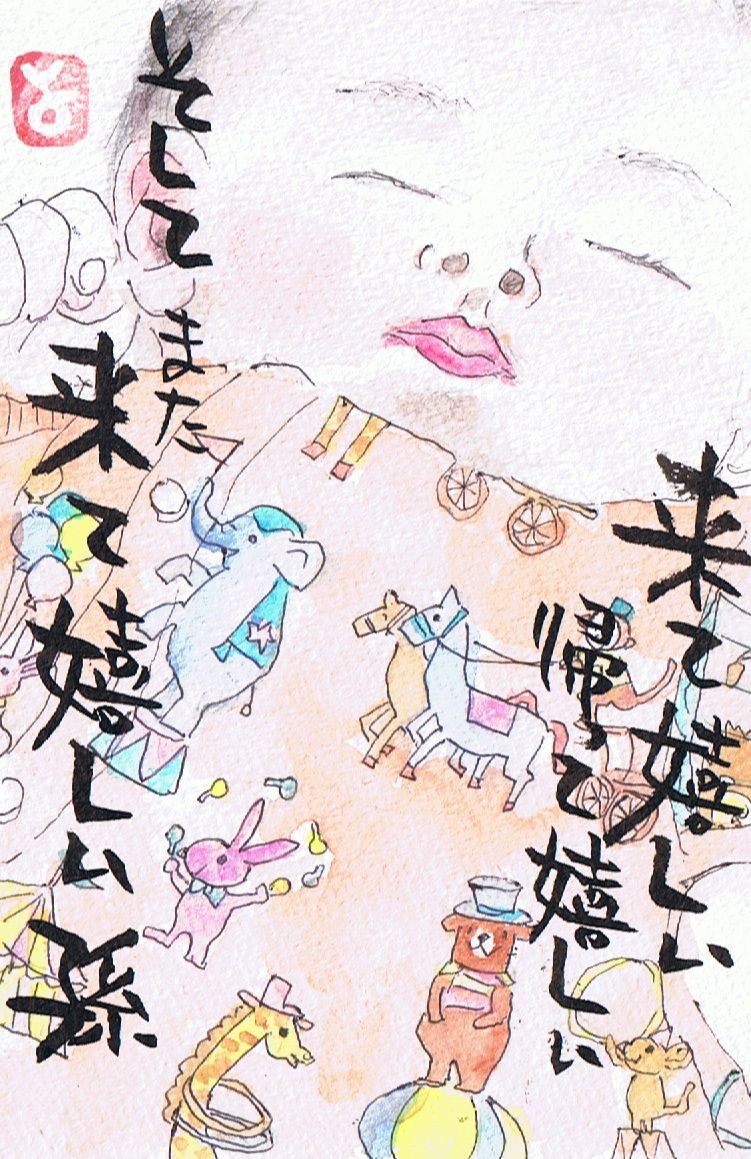 来て嬉しい
帰って嬉しい
そして
また
来て嬉しい孫